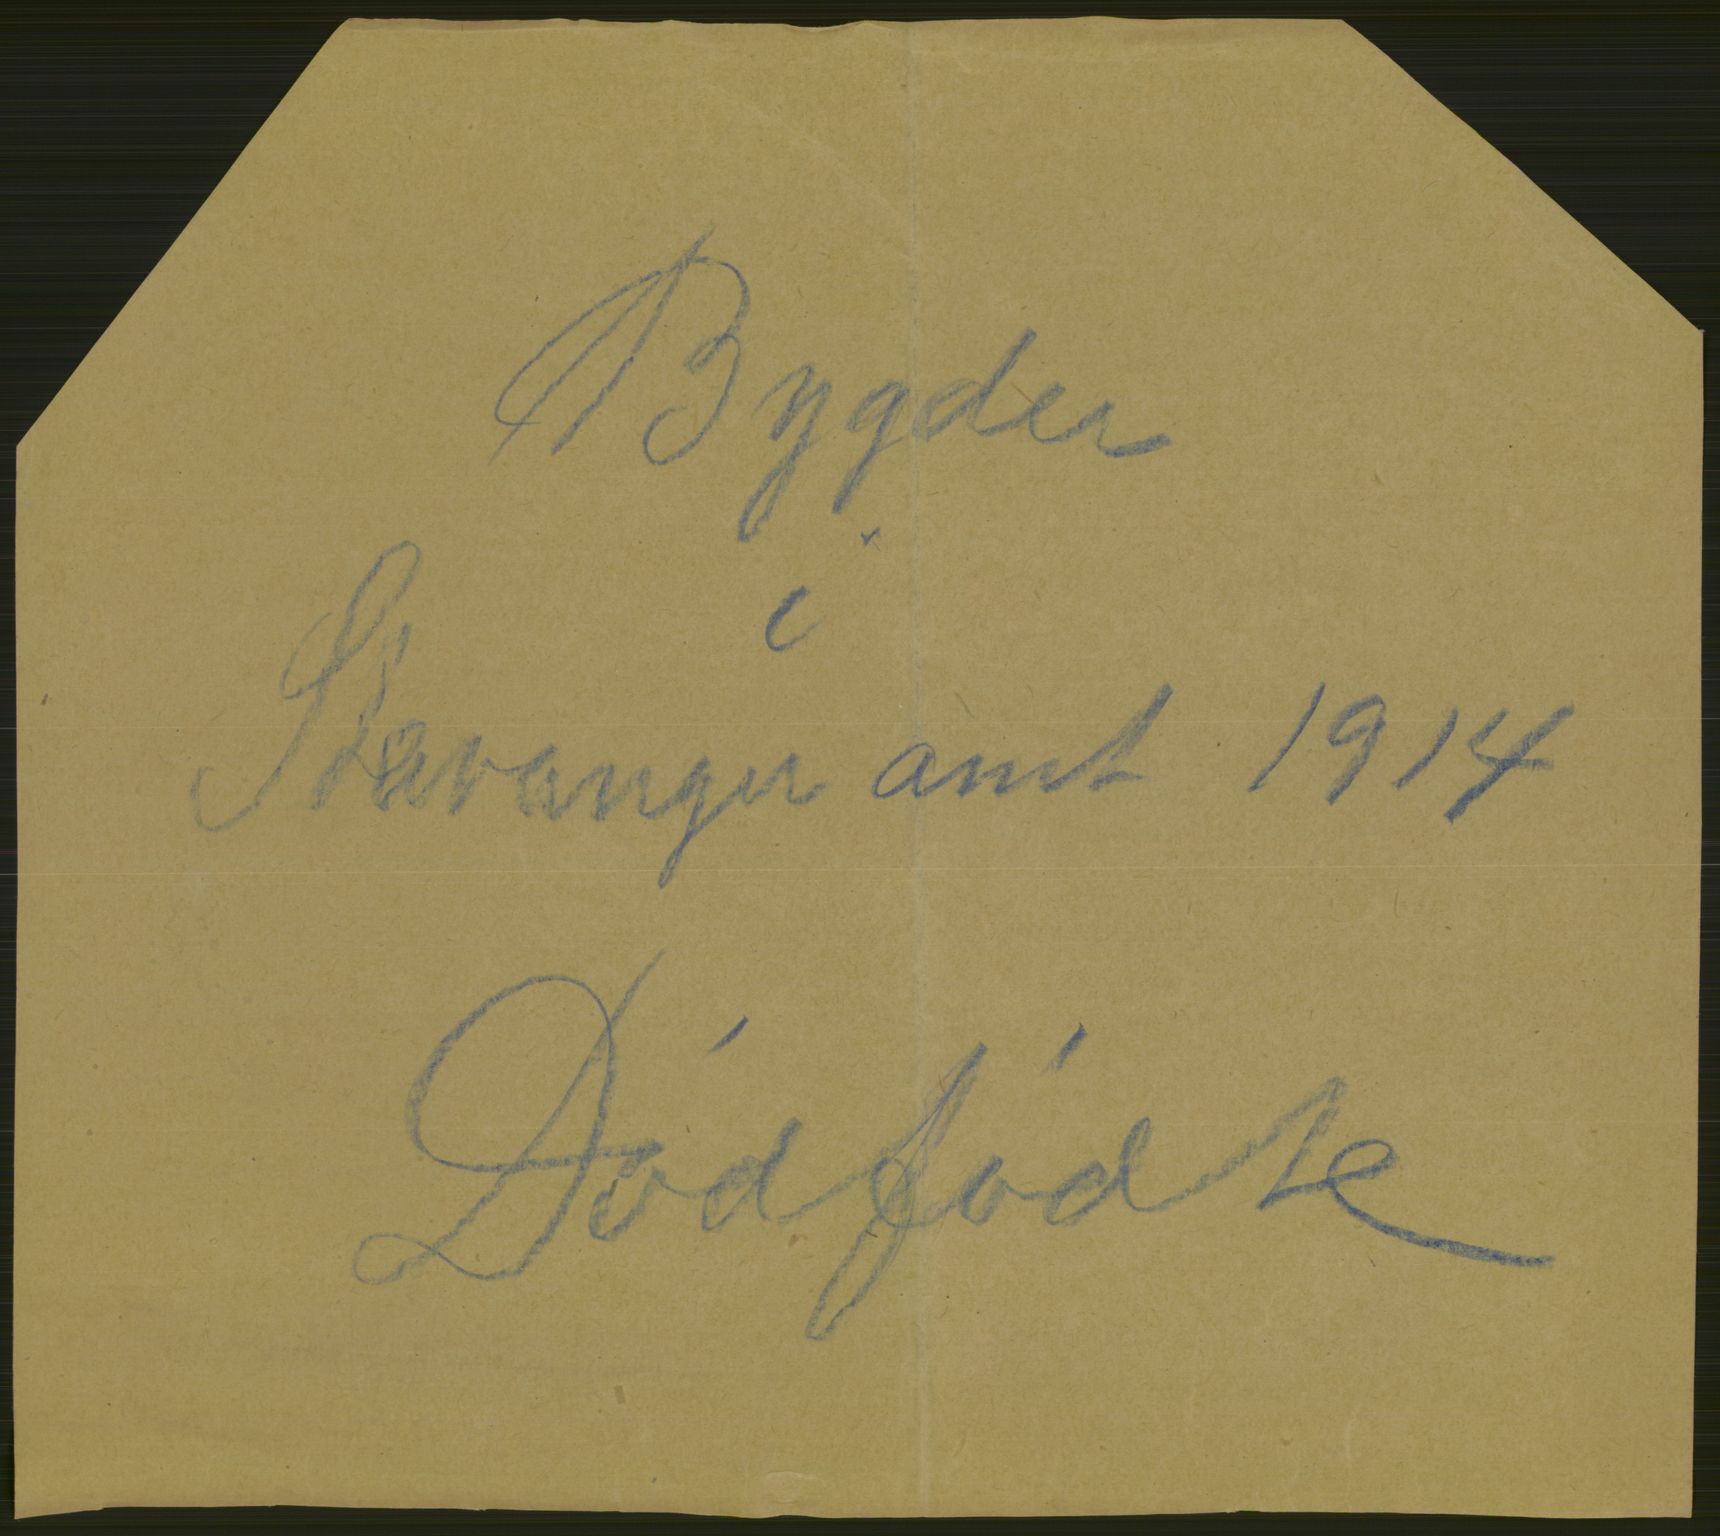 Bygder
i
Stavanger amt 1914
Dødfødte